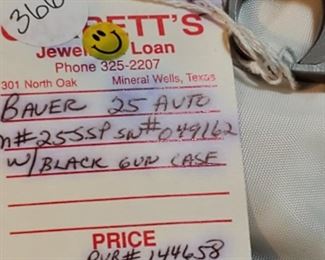 366
Jewel Loan
Phone 325-2207
301 North Oak Mineral Wells, Texas
BAUER 25 AUTO
m# 25SSP SN# 049162
W/ BLACK GUN CASE
PRICE
PUR# 144658